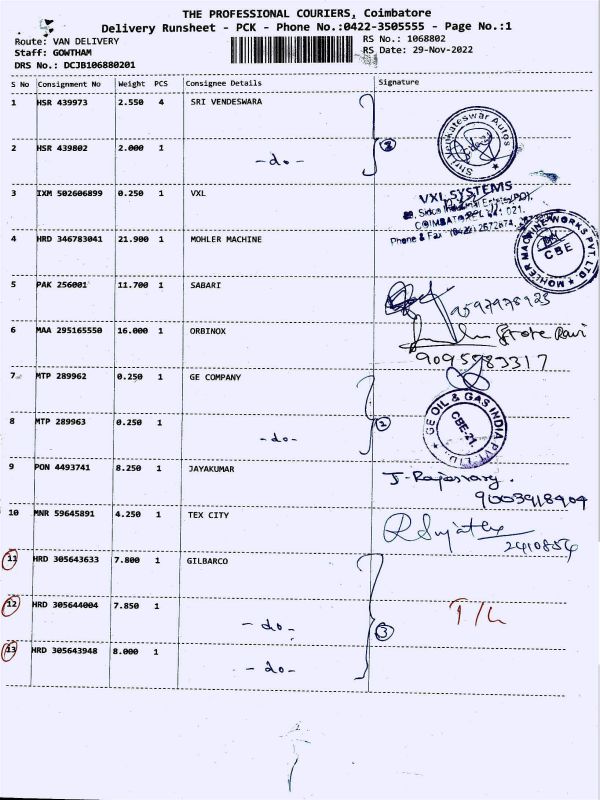 THE PROFESSIONAL COURIERS, Coimbatore
Delivery Runsheet - PCK - Phone No.:0422-3505555 - Page No.:1
Route: VAN DELIVERY
Staff: GOWTHAM
DRS No.: DCJB106880201
RS No.: 1068802
RS Date: 29-Nov-2022
S No Consignment No Weight PCS Consignee Details Signature
1 HSR 439973 2.550 4 SRI VENDESWARA
Shri Venkateswar Autos
2 HSR 439802 2.000 1 -do- 2
3 IXM 502606899 0.250 1 VXL
VXL SYSTEMS
COIMBATORE 641 021.
Phone & Fax (0422) 2672874,
4 HRD 346783041 21.900 1 MOHLER MACHINE
MOHLER MACHINE WORKS PVT. LTD.
CBE
5 PAK 256001 11.700 1 SABARI
6 MAA 295165550 16.000 1 ORBINOX
Store Ravi
9095583317
7 MTP 289962 0.250 1 GE COMPANY
GE OIL & GAS INDIA PVT. LTD.
CBE-21.
8 MTP 289963 0.250 1 -do- 2
9 PON 4493741 8.250 1 JAYAKUMAR
9003918904
10 MNR 59645891 4.250 1 TEX CITY
2410854
11 HRD 305643633 7.800 1 GILBARCO
12 HRD 305644004 7.850 1 -do- 3
13 HRD 305643948 8.000 1 -do-